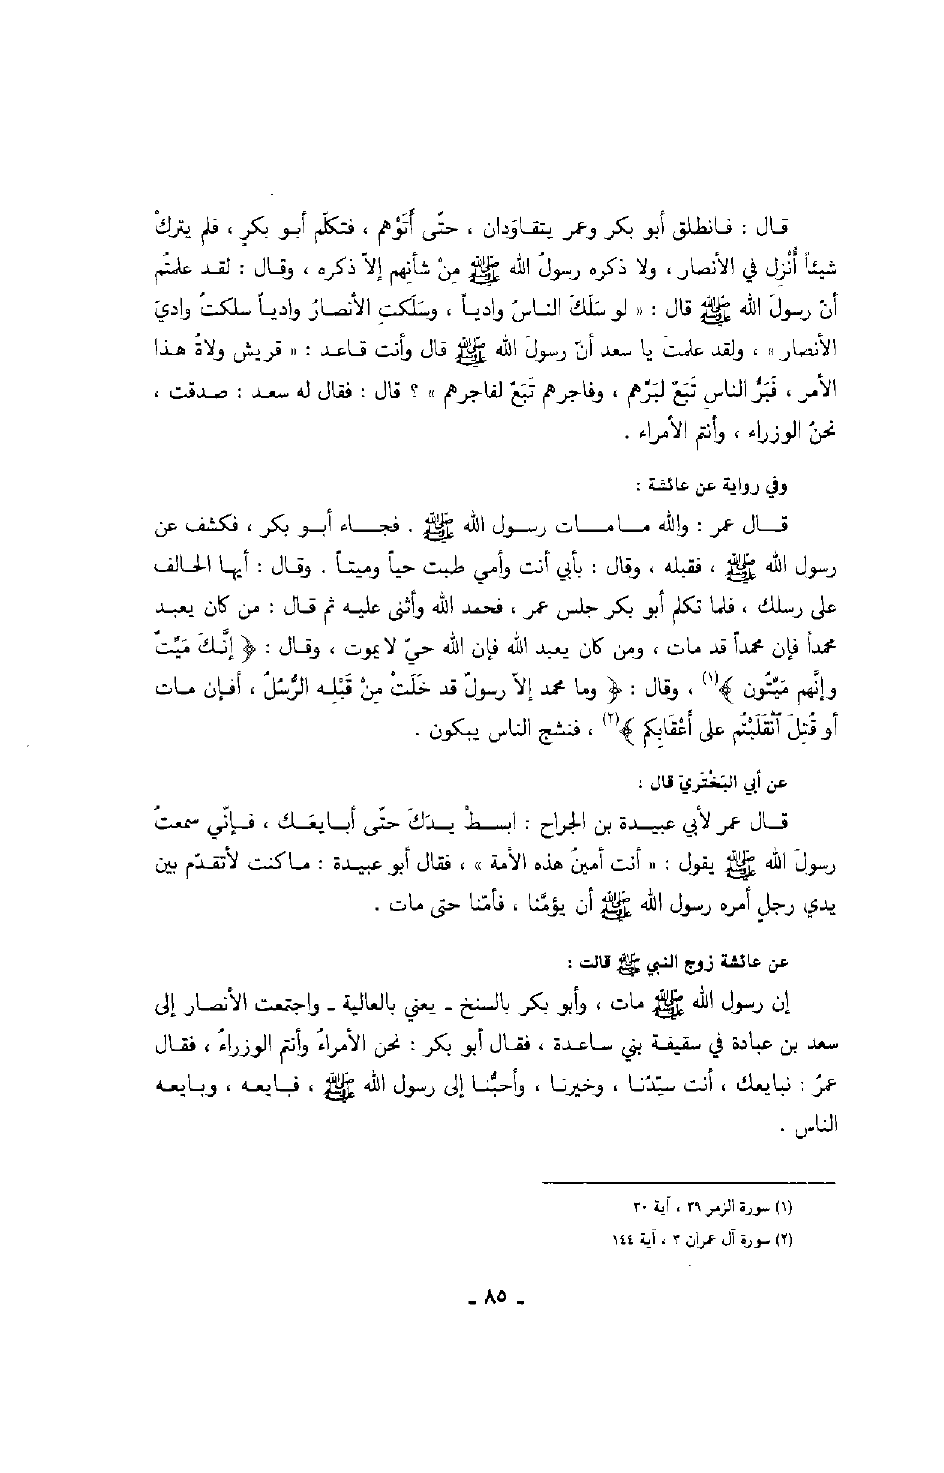 قال : فانطلق أبو بكر وعمر يتقاوَدان ، حتّى أَتَوْهم ، فتكلّم أبو بكرٍ ، فلم يتركْ
شيئاً أُنْزِل في الأنصار ، ولا ذكره رسولُ الله ﷺ مِنْ شأنهم إلاّ ذكره ، وقال : لقد علمتُم
أنّ رسولَ الله ﷺ قال : « لو سَلَكَ الناسُ وادياً ، وسَلَكتِ الأنصارُ وادياً سلكتُ واديَ
الأنصار » ، ولقد علمتَ يا سعد أنّ رسولَ الله ﷺ قال وأنت قاعد : « قريش ولاةُ هذا
الأمر ، فَبَرُّ الناسِ تَبَعٌ لبَرِّهم ، وفاجرهم تَبَعٌ لفاجرهم » ؟ قال : فقال له سعد : صدقت ،
نحنُ الوزراء ، وأنتم الأمراء .
وفي رواية عن عائشة :
قال عمر : والله ما مات رسول الله ﷺ . فجاء أبو بكر ، فكشف عن
رسول الله ﷺ ، فقبله ، وقال : بأبي أنت وأمي طبت حياً وميتاً . وقال : أيها الحالف
على رسلك ، فلما تكلم أبو بكر جلس عمر ، فحمد الله وأثنى عليه ثم قال : من كان يعبد
محمداً فإن محمداً قد مات ، ومن كان يعبد الله فإن الله حيّ لا يموت ، وقال : ﴿ إنَّكَ مَيِّتٌ
وإنَّهم مَيِّتُون ﴾(١) ، وقال : ﴿ وما محمد إلاّ رسولٌ قد خَلَتْ مِنْ قَبْلِه الرُّسُلُ ، أفإن مات
أو قُتِلَ ٱنْقَلَبْتُم على أعْقابِكم ﴾(٢) ، فنشج الناس يبكون .
عن أبي البَخْتَريّ قال :
قال عمر لأبي عبيدة بن الجراح : ابسطْ يدَكَ حتّى أبايعَك ، فإنّي سمعتُ
رسولَ الله ﷺ يقول : « أنت أمينُ هذه الأمة » ، فقال أبو عبيدة : ما كنت لأتقدّم بين
يدي رجلٍ أمره رسول الله ﷺ أن يؤمَّنا ، فأمّنا حتى مات .
عن عائشة زوج النبي ﷺ قالت :
إن رسول الله ﷺ مات ، وأبو بكر بالسنح ـ يعني بالعالية ـ واجتمعت الأنصار إلى
سعد بن عبادة في سقيفة بني ساعدة ، فقال أبو بكر : نحن الأمراءُ وأنتم الوزراءُ ، فقال
عمرُ : نبايعك ، أنت سيّدُنا ، وخيرنا ، وأحبُّنا إلى رسول الله ﷺ ، فبايعه ، وبايعه
الناس .
(١) سورة الزمر ٣٩ ، آية ٣٠
(٢) سورة آل عمران ٣ ، آية ١٤٤
ـ ٨٥ ـ